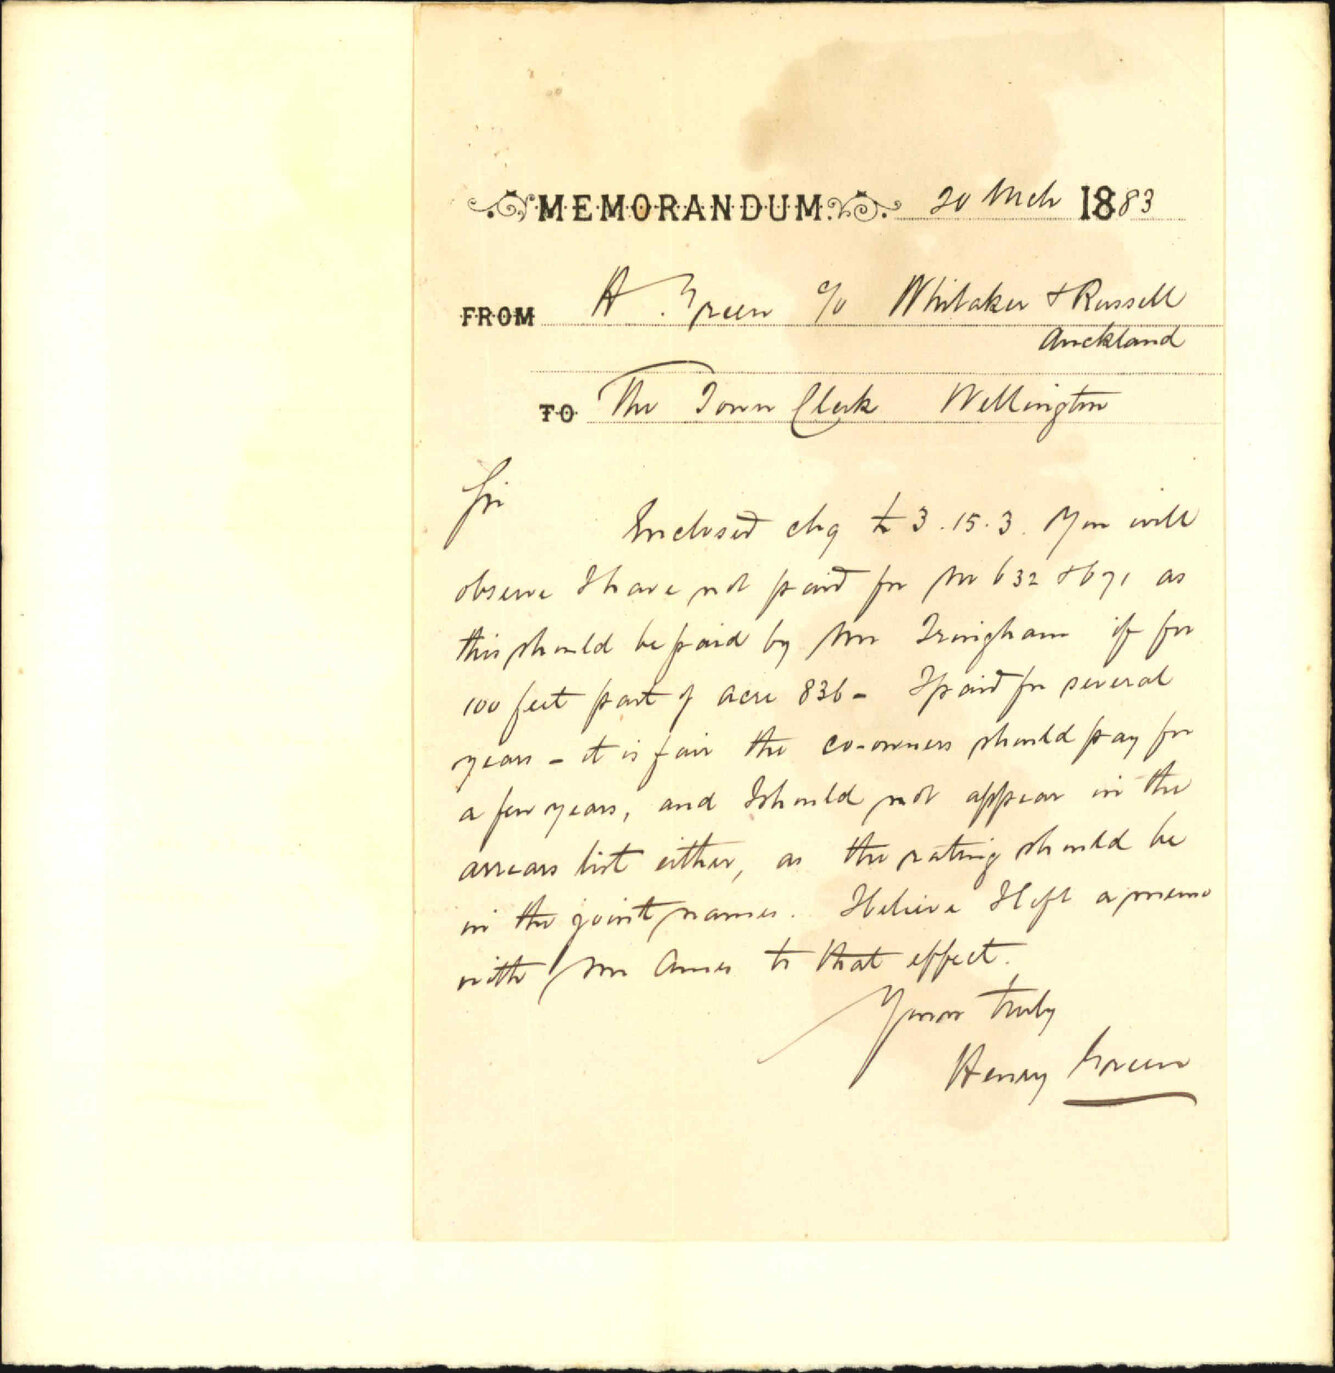 MEMORANDUM. 20 Mch 1883
FROM H. Green c/o Whitaker & Russell
Auckland
TO The Town Clerk Wellington
Sir
Enclosed chq £3.15.3. You will
observe I have not paid for No 632 & 671 as
this should be paid by Mr Tringham if for
100 feet part of acre 836 - I paid for several
years - it is fair the co-owners should pay for
a few years, and I should not appear in the
arrears list either, as the rating should be
in the joint names. I believe I left a memo
with Mr Ames to that effect.
Yours truly
Henry Green